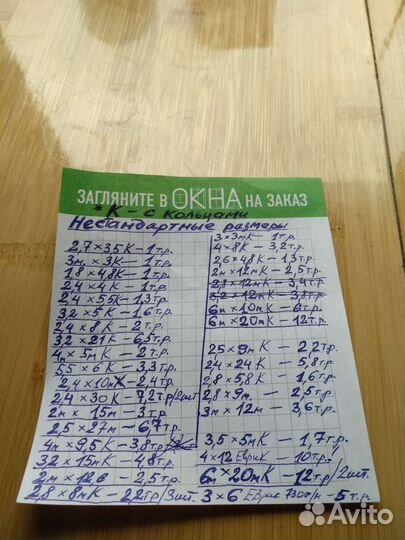 ЗАГЛЯНИТЕ В ОКНА НА ЗАКАЗ
*К - с кольцами
Нестандартные размеры
2,7×3,5К - 1т.р.
3м × 3К - 1т.р.
1,8×4,8К - 1т.р.
2,4×4К - 1т.р.
2,4×5,5К - 1,3т.р.
3,2×5К - 1,6т.р.
2,4×8К - 2т.р.
3,2×21К - 6,5т.р.
4м×5мК - 2т.р.
5,5×6К - 3,3т.р.
2,4×10мК - 2,4т.р.
2,4×30К - 7,2т.р/2шт
2м × 15м - 3т.р
2,5×27м - 6,7т.р.
4м×9,5К - 3,8т.р
3,2×15мК - 4,8т.р.
2м×12 - 2,5т.р.
2,8×8мК - 2,2т.р/3шт.
3×3мК - 1т.р.
4×8К - 3,2т.р.
2,6×4,8К - 1,3т.р
2м×12мК - 2,5т.р.
2,8×12мК - 3,4т.р
3,2×12мК - 3,8т.р
6м×10мК - 6т.р.
6м×20мК - 12т.р
2,5×9мК - 2,2т.р.
2,4×24К - 5,8т.р.
2,8×5,8К - 1,6т.р.
2,8×9м - 2,5т.р
3м×12м - 3,6т.р.
3,5×5мК - 1,7т.р.
4×12 Еврик - 10т.р.
6м×20мК - 12т.р/2шт.
3×6 Еврик - 5т.р.
Avito